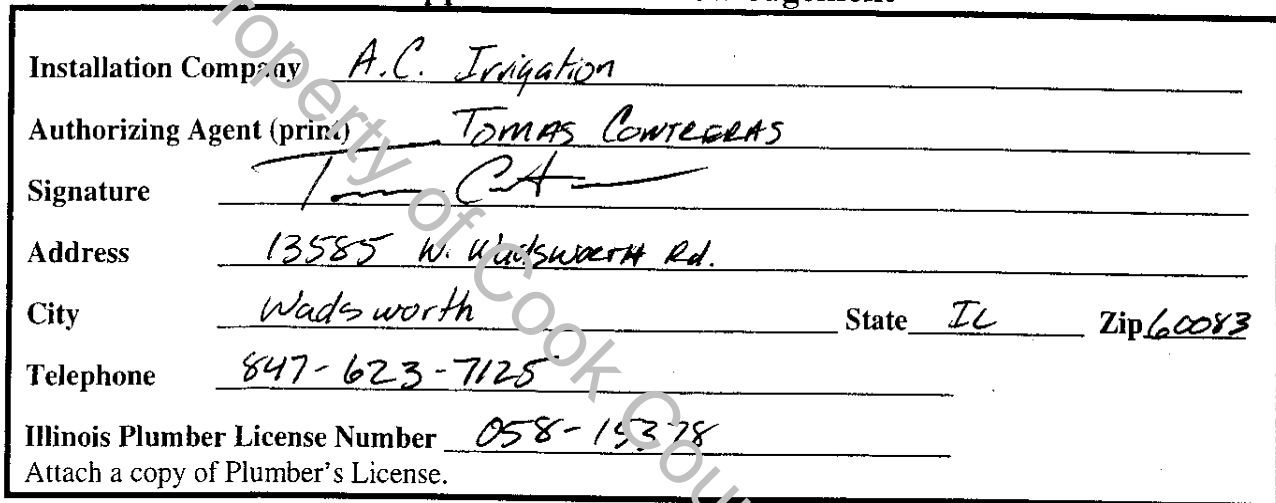 Installation Company A.C. Irrigation
Authorizing Agent (print) TOMAS CONTRERAS
Signature
Address 13585 W. WADSWORTH Rd.
City Wadsworth State IL Zip 60083
Telephone 847-623-7125
Illinois Plumber License Number 058-15378
Attach a copy of Plumber's License.
roperty of Cook Cou